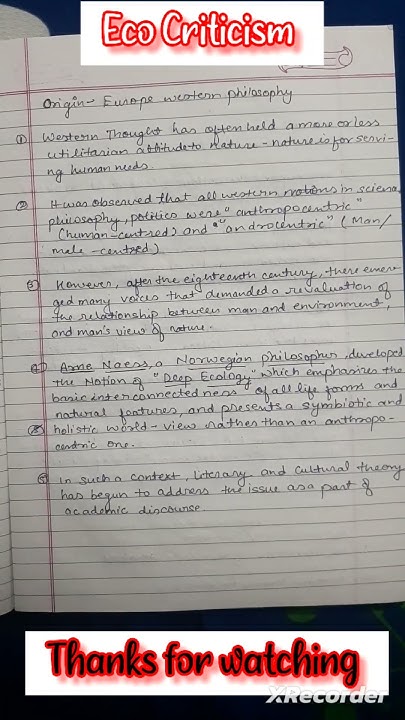 Eco Criticism
Origin- Europe western philosophy
① Western Thought has often held a more or less
utilitarian attitude to nature - nature is for servi-
ng human needs.
② It was observed that all western notions in science,
philosophy, politics were "anthropocentric"
(human-centred) and "androcentric" (Man/
male-centred)
③ However, after the eighteenth century, there emer-
ged many voices that demanded a revaluation of
the relationship between man and environment,
and man's view of nature.
④ Arne Naess, a Norwegian philosopher, developed
the Notion of "Deep Ecology" which emphasizes the
basic interconnectedness of all life forms and
natural features, and presents a symbiotic and
holistic world-view rather than an anthropo-
centric one.
⑤ In such a context, literary and cultural theory
has begun to address the issue as a part of
academic discourse.
Thanks for watching
XRecorder